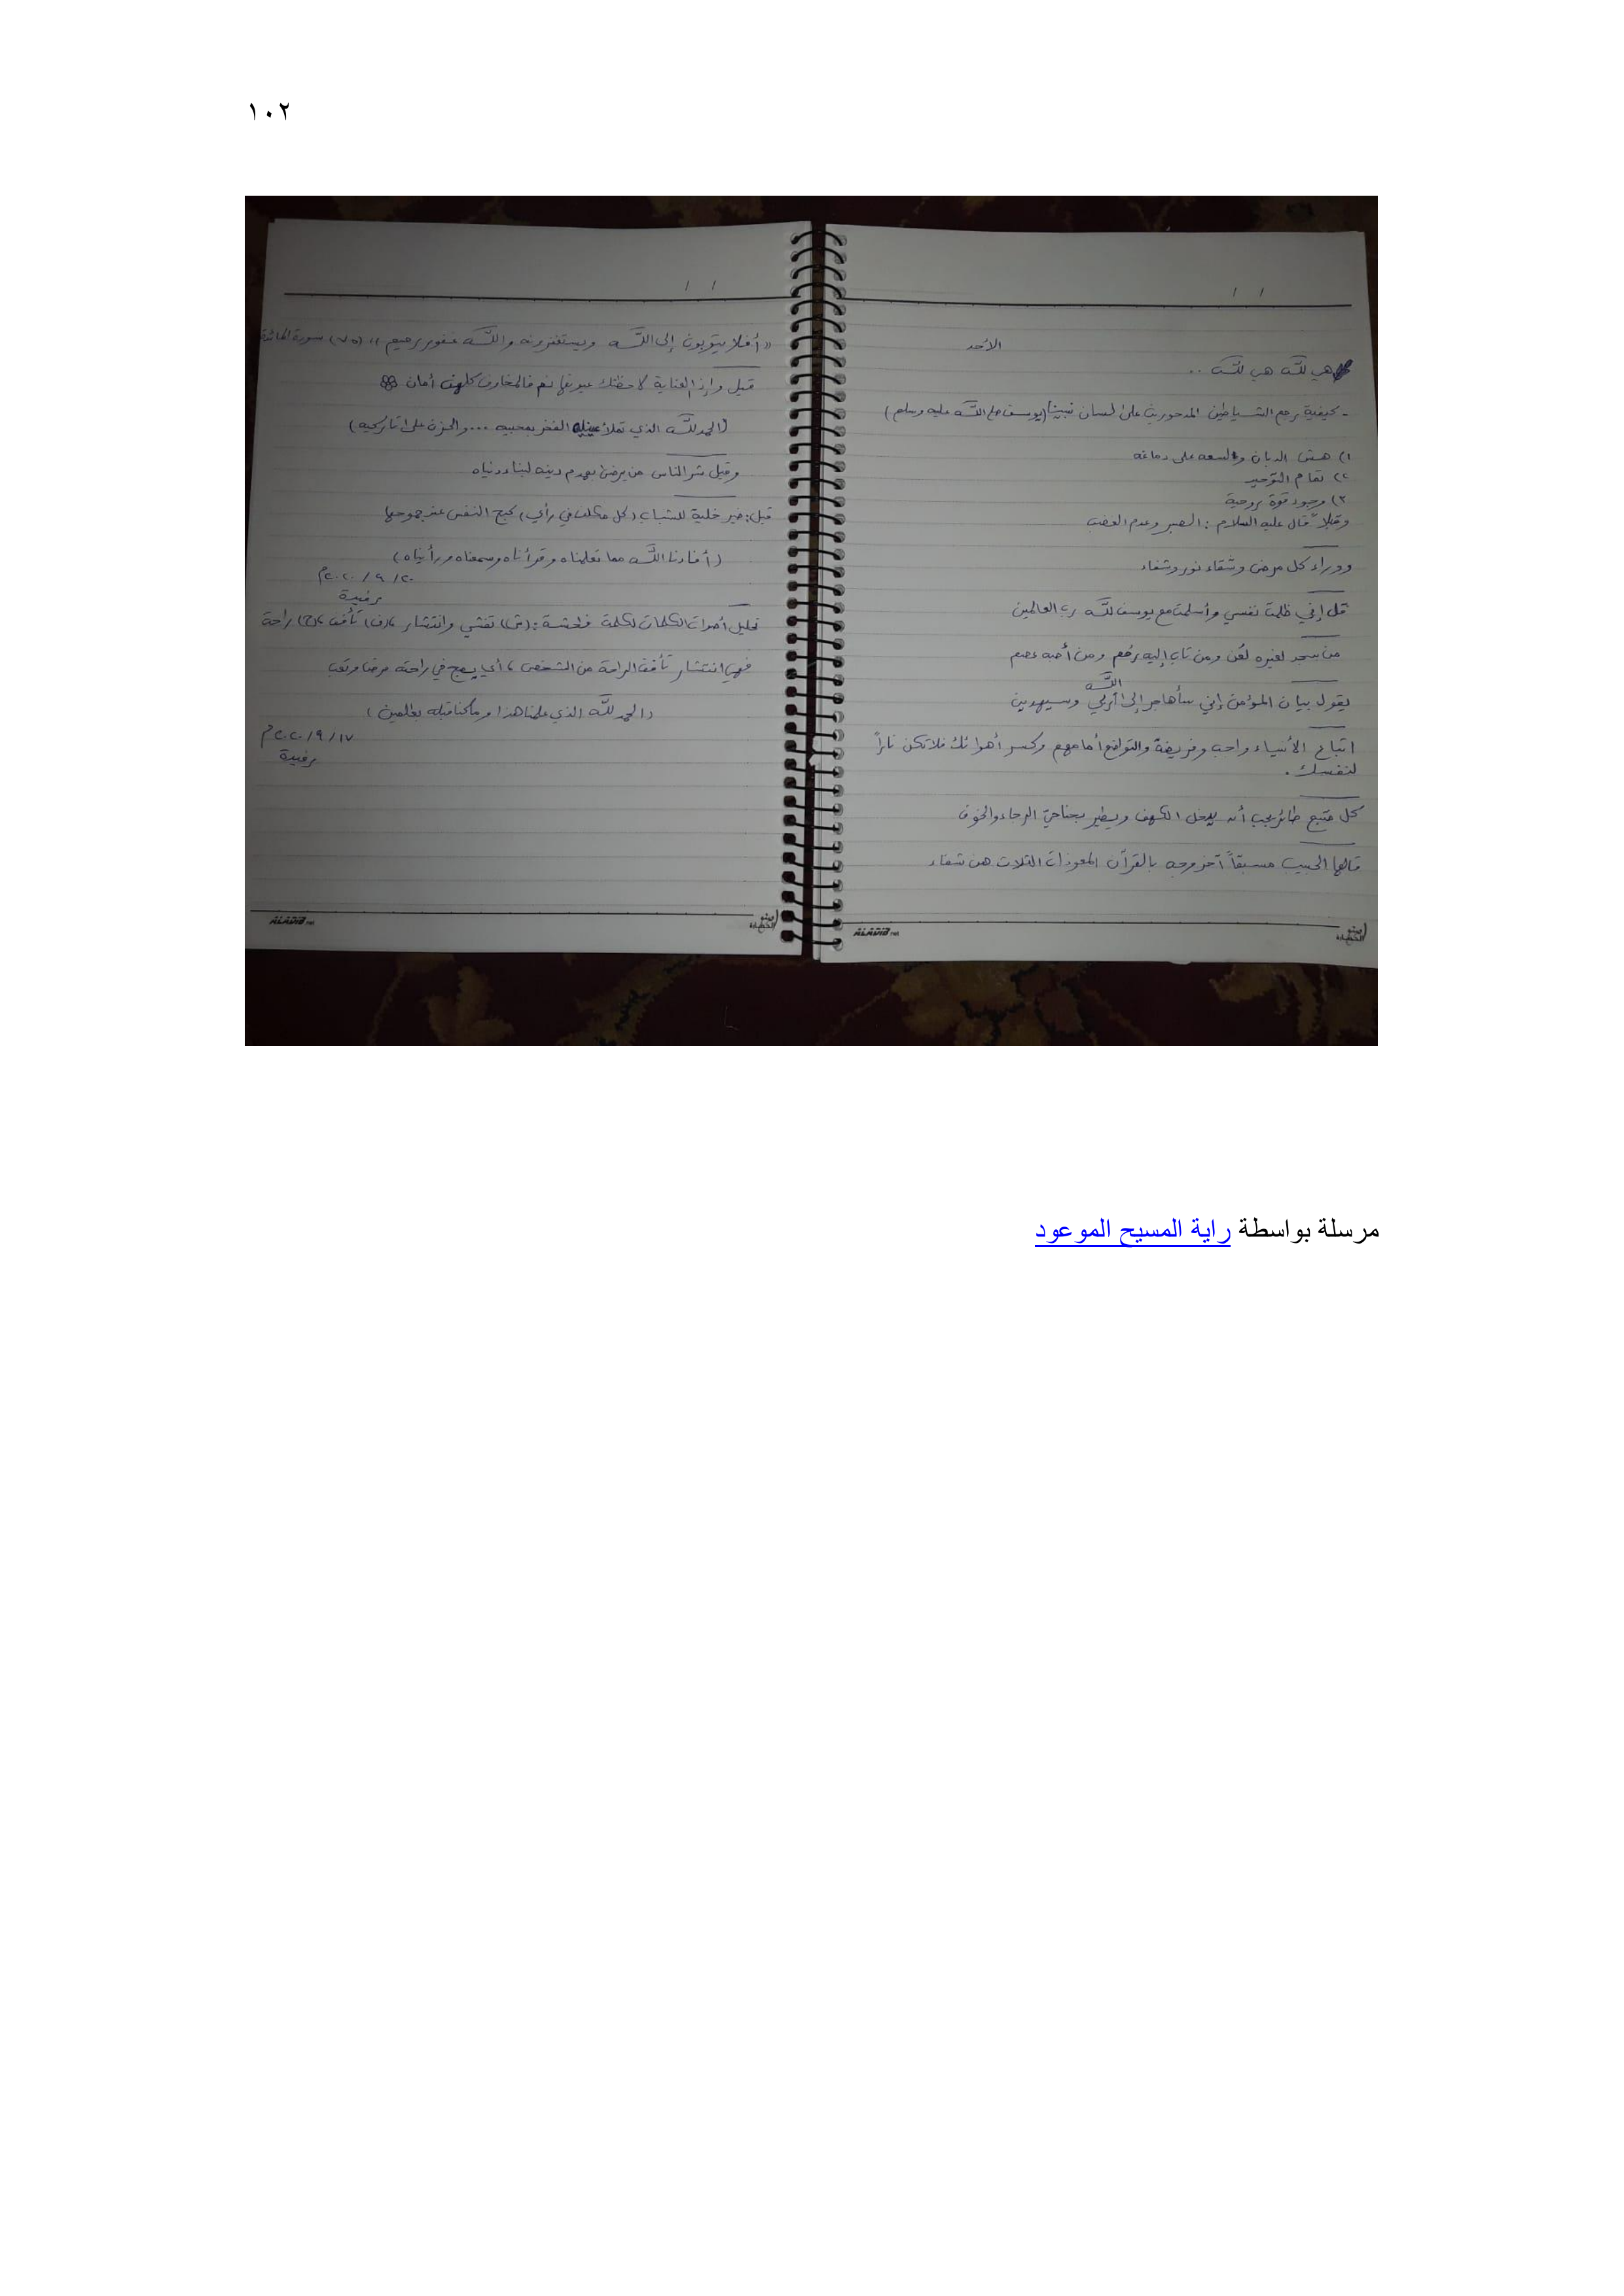 ١٠٢
الأحد
هي للّه هي للّه ..
- كيفية رجم الشياطين المدحورين على لسان نبينا (يوسف صلى اللّه عليه وسلم)
١) هش الدبان والسعه على دماغه
٢) تمام التوحيد
٣) وجود قوة روحية
وقبلاً قال عليه السلام : الصبر وعدم الغضب
ووراء كل مرض وشقاء نور وشفاء
قل إني ظلمت نفسي وأسلمت مع يوسف للّه رب العالمين
من سجد لغيره لُعن ومن تاب إليه رُحم ومن أحبه عصم
يقول بيان المؤمن إني سأهاجر إلى اللّه ربي وسيهدين
اتباع الأنبياء واجب وفريضة والتواضع أمامهم وكسر أهوائك فلا تكن ناراً
لنفسك .
كل متبع طائر يجب أن يدخل الكهف ويطير بجناحيّ الرجاء والخوف
قالها الحبيب مسبقاً آخر وجه بالقرآن المعوذات الثلاث هن شفاء
اصنع الحياة
ALADIB.net
« أفلا يتوبون إلى اللّه ويستغفرونه واللّه غفور رحيم » (٧٥) سورة المائدة
قيل وإذا العناية لاحظتك عيونها نم فالمخاوف كلهن أمان
(الحمد للّه الذي تملأ عينيه الفخر بمحبيه ... والحزن على تاركيه)
وقيل شر الناس من يرضى بهدم دينه لبناء دنياه
قيل: خير خلية للشباب (كل مكلف في رأي) كبح النفس عند جموحها
(أفادنا اللّه مما تعلمناه وقرأناه وسمعناه ورأيناه)
٢٠/٩/٢٠٢٠م
رفيدة
تحليل أصوات الكلمات لكلمة فاحشة : (ش) تفشي وانتشار، (ف) تأفف، (ح) راحة
فهي انتشار تأفف الراحة من الشخص، أي يصبح في راحته مرض وتعب
(الحمد للّه الذي علمنا هذا وما كنا قبله بعالمين)
١٧/٩/٢٠٢٠م
رفيدة
ALADIB.net
مرسلة بواسطة راية المسيح الموعود